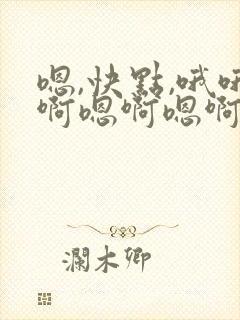 嗯,快點,哦哦
啊嗯啊嗯啊
瀾木卿